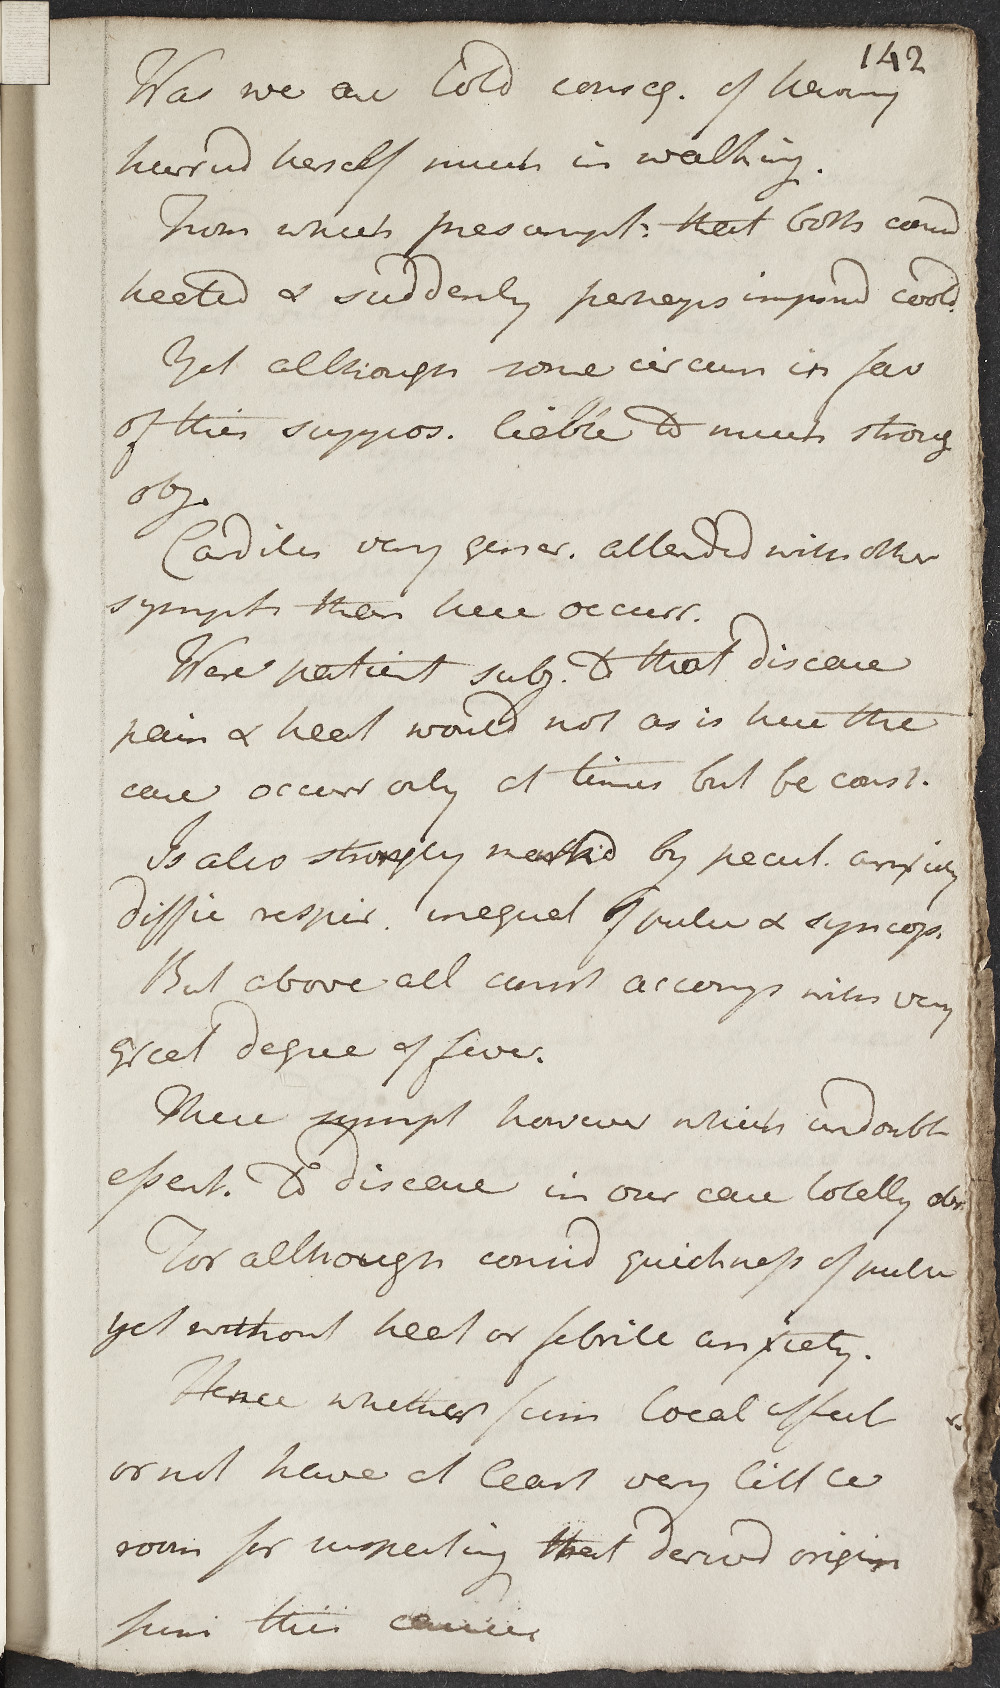 142
Was we are told conseq. of having
hurried herself much in walking.
From which presumpt: that both consid
heated & suddenly perhaps imprud coold.
Yet although some circum in fav
of this suppos. liable to much strong
obj.
Carditis very gener. attended with other
sympts than here occurr.
Were patient subj. to that disease
pain & heat would not as is here the
case occurr only at times but be const.
Is also strongly marked by pecul. anxiety
diffic respir. inequal of pulse & syncop.
But above all const accomp with very
great degree of fever.
These sympt however which undoubt
essent. to disease in our case totally abs.
For although consid quickness of pulse
yet without heat or febrile anxiety.
Hence whether from local affect
or not have at least very little
room for suspecting that derived origin
from this cause